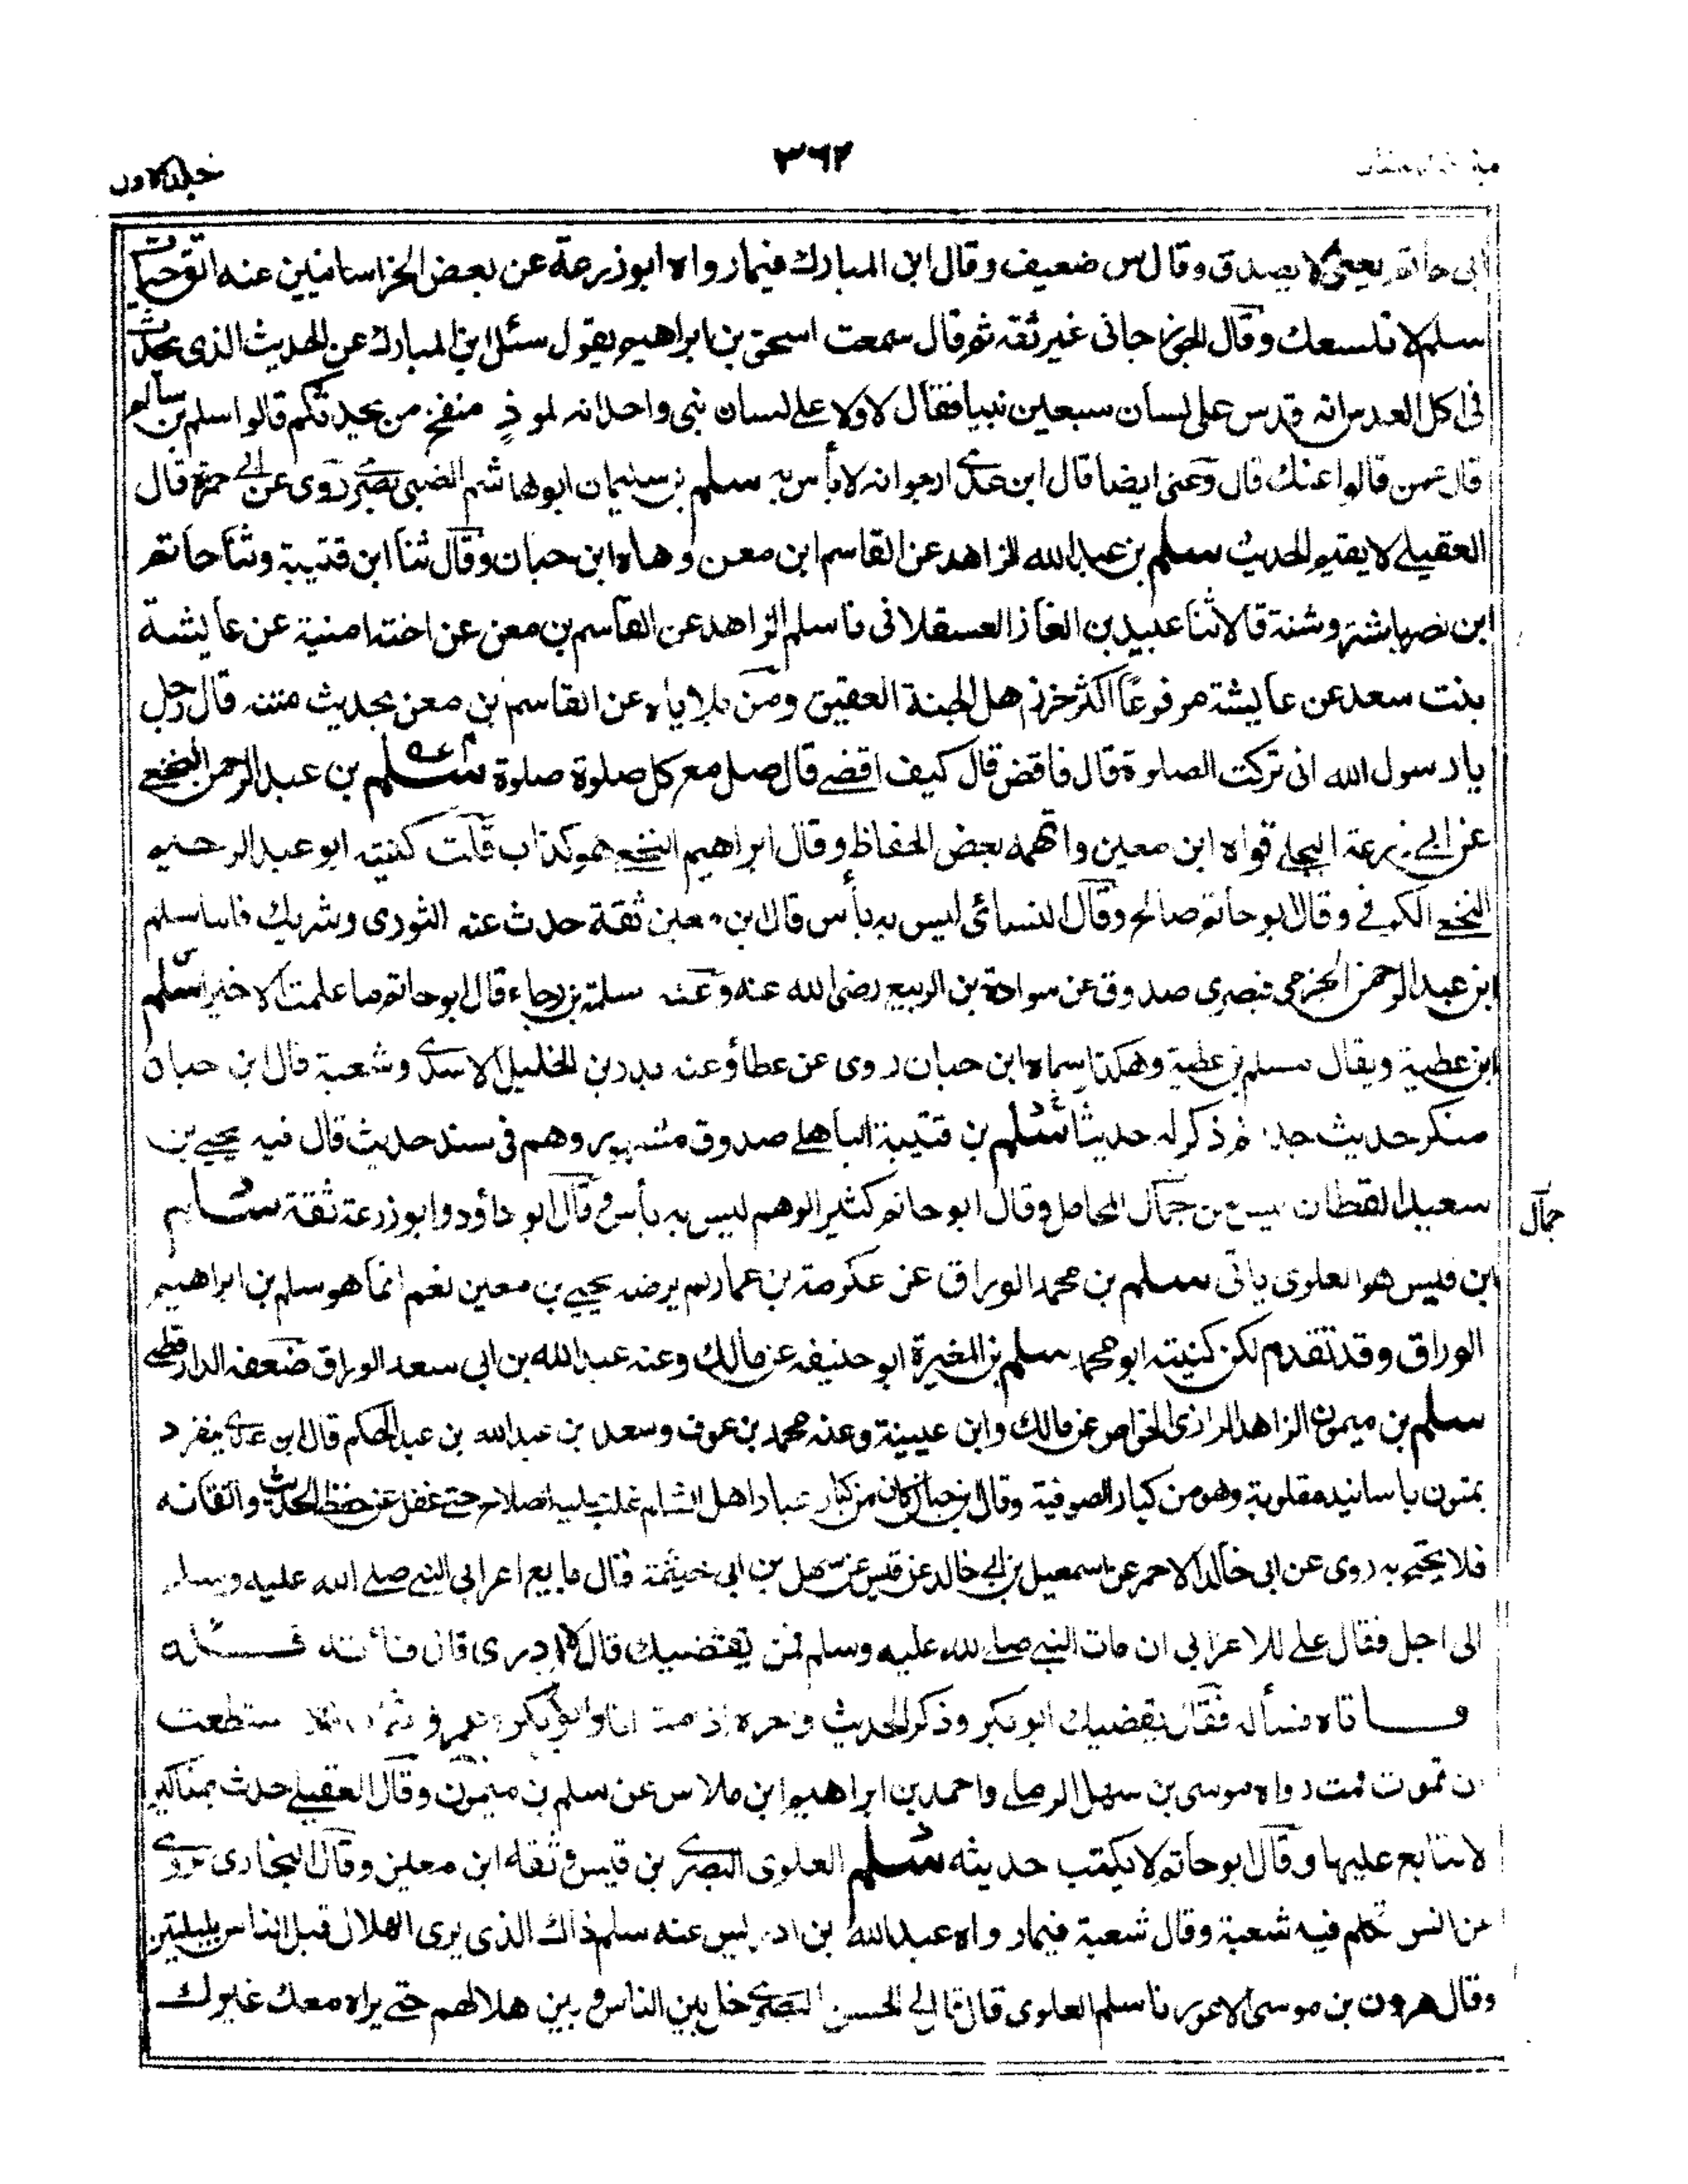 ٣٦٢
جلد الاول
ابى حاتم يعنى لا يصدق وقال س ضعيف وقال ابن المبارك فيما رواه ابو زرعة عن بعض الخراسانيين عنه اتق حيات
سلم لا تلسعك وقال الجوزجانى غير ثقة ثم قال سمعت اسحق بن ابراهيم يقول سئل ابن المبارك عن الحديث الذى يحدث
فى اكل العدس انه قدس على لسان سبعين نبيا فقال لا ولا على لسان نبى واحد انه لموذٍ منفخ من يحدثكم قالوا اسلم بن سالم
قال عمن قالوا عنك قال وعنى ايضا قال ابن عدى ارجو انه لا بأس به سلم بن سليمان ابو هاشم الضبى بصرى روى عن ابى حمزة قال
العقيلى لا يقيم الحديث سلم بن عبد الله الزاهد عن القاسم ابن معن وهاه ابن حبان وقال ثنا ابن قتيبة وثنا حاتم
ابن نصر باشنة وشنة قالا ثنا عبيد بن الغاز العسقلانى نا سلم الزاهد عن القاسم بن معن عن اخته امنية عن عايشة
بنت سعد عن عايشة مرفوعًا اكثر خرز اهل الجنة العقيق ومن بلاياه عن القاسم بن معن بحديث متنه قال رجل
يا رسول الله انى تركت الصلوة قال فاقض قال كيف اقضى قال صل مع كل صلوة صلوة سلم بن عبد الرحمن النخعى
عن ابى زرعة البجلى قواه ابن معين واتهمه بعض الحفاظ وقال ابراهيم النخعى هو كذاب قلت كنيته ابو عبد الرحيم
النخعى الكوفى وقال ابو حاتم صالح وقال النسائى ليس به بأس قال ابن معين ثقة حدث عنه الثورى وشريك فاما سلم
ابن عبد الرحمن الجرمى فبصرى صدوق عن سوادة بن الربيع رضى الله عنه وعنه سلمة بن رجاء قال ابو حاتم ما علمت الا خيرا سلم
ابن عطية ويقال مسلم بن عطية وهكذا سماه ابن حبان روى عن عطاء وعنه بدر بن الخليل الاسدى وشعبة قال ابن حبان
منكر حديث جدا ثم ذكر له حديثا سلم بن قتيبة الباهلى صدوق مشهور وهم فى سند حديث قال فيه يحيى بن
سعيد القطان ليس من جمال المحامل وقال ابو حاتم كثير الوهم ليس به بأس وقال ابو داؤد وابو زرعة ثقة سلم
جمال
ابن قيس هو العلوى ياتى سلم بن محمد الوراق عن عكرمة بن عمار لم يرضه يحيى بن معين نعم انما هو سلم بن ابراهيم
الوراق وقد تقدم لكن كنيته ابو محمد سلم بن المغيرة ابو حنيفه عن مالك وعنه عبد الله بن ابى سعد الوراق ضعفه الدارقطنى
سلم بن ميمون الزاهد الرازى الخواص عن مالك وابن عيينة وعنه محمد بن عوف وسعد بن عبد الله بن عبد الحكم قال ابن عدى ينفرد
بمتون باسانيد مقلوبة وهو من كبار الصوفية وقال ابن حبان كان من كبار عباد اهل الشام غلب عليه الصلاح حتى غفل عن حفظ الحديث واتقانه
فلا يحتج به روى عن ابى خالد الاحمر عن اسمعيل بن ابى خالد عن قيس عن سهل بن ابى خيثمة قال بايع اعرابى النبى صلى الله عليه وسلم
الى اجل فقال على للاعرابى ان مات النبى صلى الله عليه وسلم فمن يقضيك قال لا ادرى قال فأته فسله
فاتاه فسأله فقال يقضيك ابو بكر وذكر الحديث و اذ مت انا وابو بكر وعمر و استطعت
ان تموت فمت رواه موسى بن سهل الرملى واحمد بن ابراهيم ابن ملاس عن سلم بن ميمون وقال العقيلى حدث بمناكير
لا يتابع عليها وقال ابو حاتم لا يكتب حديثه سلم العلوى البصرى بن قيس وثقه ابن معين وقال البخارى يروى
عن انس تكلم فيه شعبة وقال شعبة فيما رواه عبد الله بن ادريس عنه سلم ذاك الذى يرى الهلال قبل الناس بليلتين
وقال هرون بن موسى الاعور نا سلم العلوى قال قال لى الحسن البصرى خل بين الناس وبين هلالهم حتى يراه معك غيرك